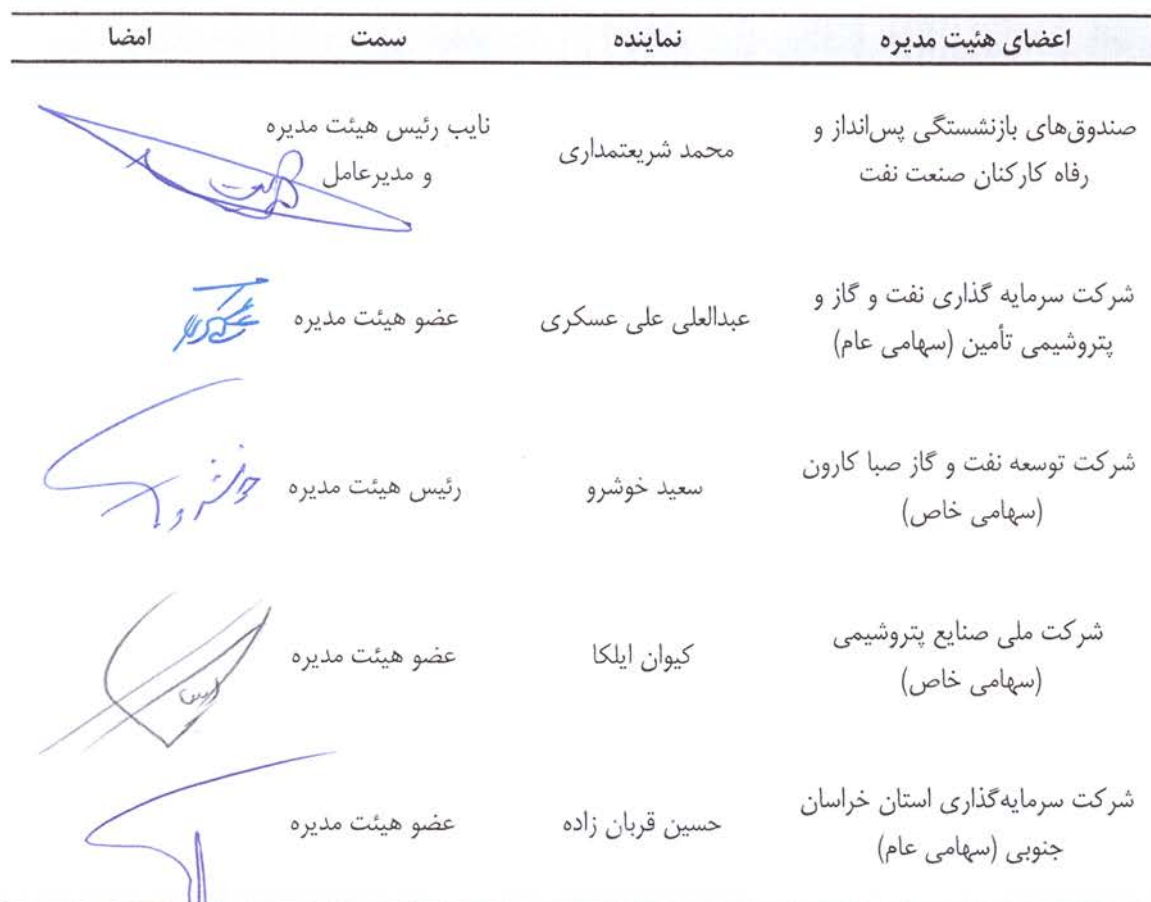 اعضای هئیت مدیره نماینده سمت امضا
صندوق‌های بازنشستگی پس‌انداز و
رفاه کارکنان صنعت نفت
محمد شریعتمداری
نایب رئیس هیئت مدیره
و مدیرعامل
شرکت سرمایه گذاری نفت و گاز و
پتروشیمی تأمین (سهامی عام)
عبدالعلی علی عسکری
عضو هیئت مدیره
شرکت توسعه نفت و گاز صبا کارون
(سهامی خاص)
سعید خوشرو
رئیس هیئت مدیره
خوشرو
شرکت ملی صنایع پتروشیمی
(سهامی خاص)
کیوان ایلکا
عضو هیئت مدیره
شرکت سرمایه‌گذاری استان خراسان
جنوبی (سهامی عام)
حسین قربان زاده
عضو هیئت مدیره